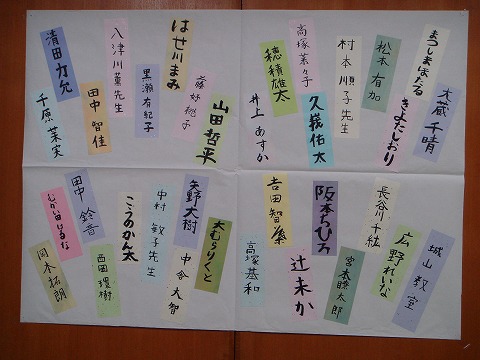 大蔵千晴
まつしまほたる
きよたしおり
松本有加
村本順子先生
久我佑太
高塚菜々子
穂積雄太
井上あすか
山田哲平
はせ川まみ
黒瀬有紀子
八津川薫先生
田中智佳
清田力允
千原菜実
城山教室
広野れいな
長谷川千紘
宮本瞭太郎
阪本ちひろ
辻未か
吉田智粢
高塚基和
大むらりくと
矢野大樹
中倉大智
中村敏子先生
こうのかん太
西岡環樹
田中鈴音
岡本拓朗